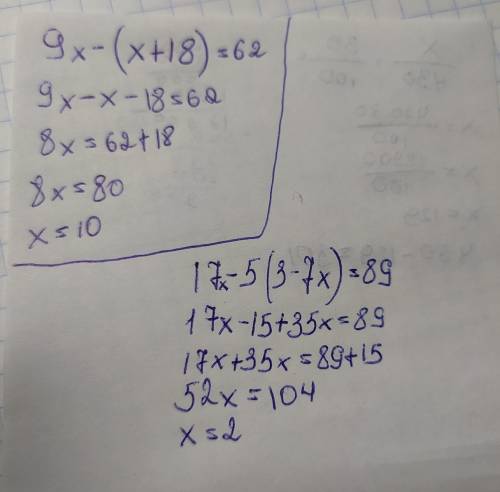 9x-(x+18)=62
9x-x-18=62
8x=62+18
8x=80
x=10
17x-5(3-7x)=89
17x-15+35x=89
17x+35x=89+15
52x=104
x=2